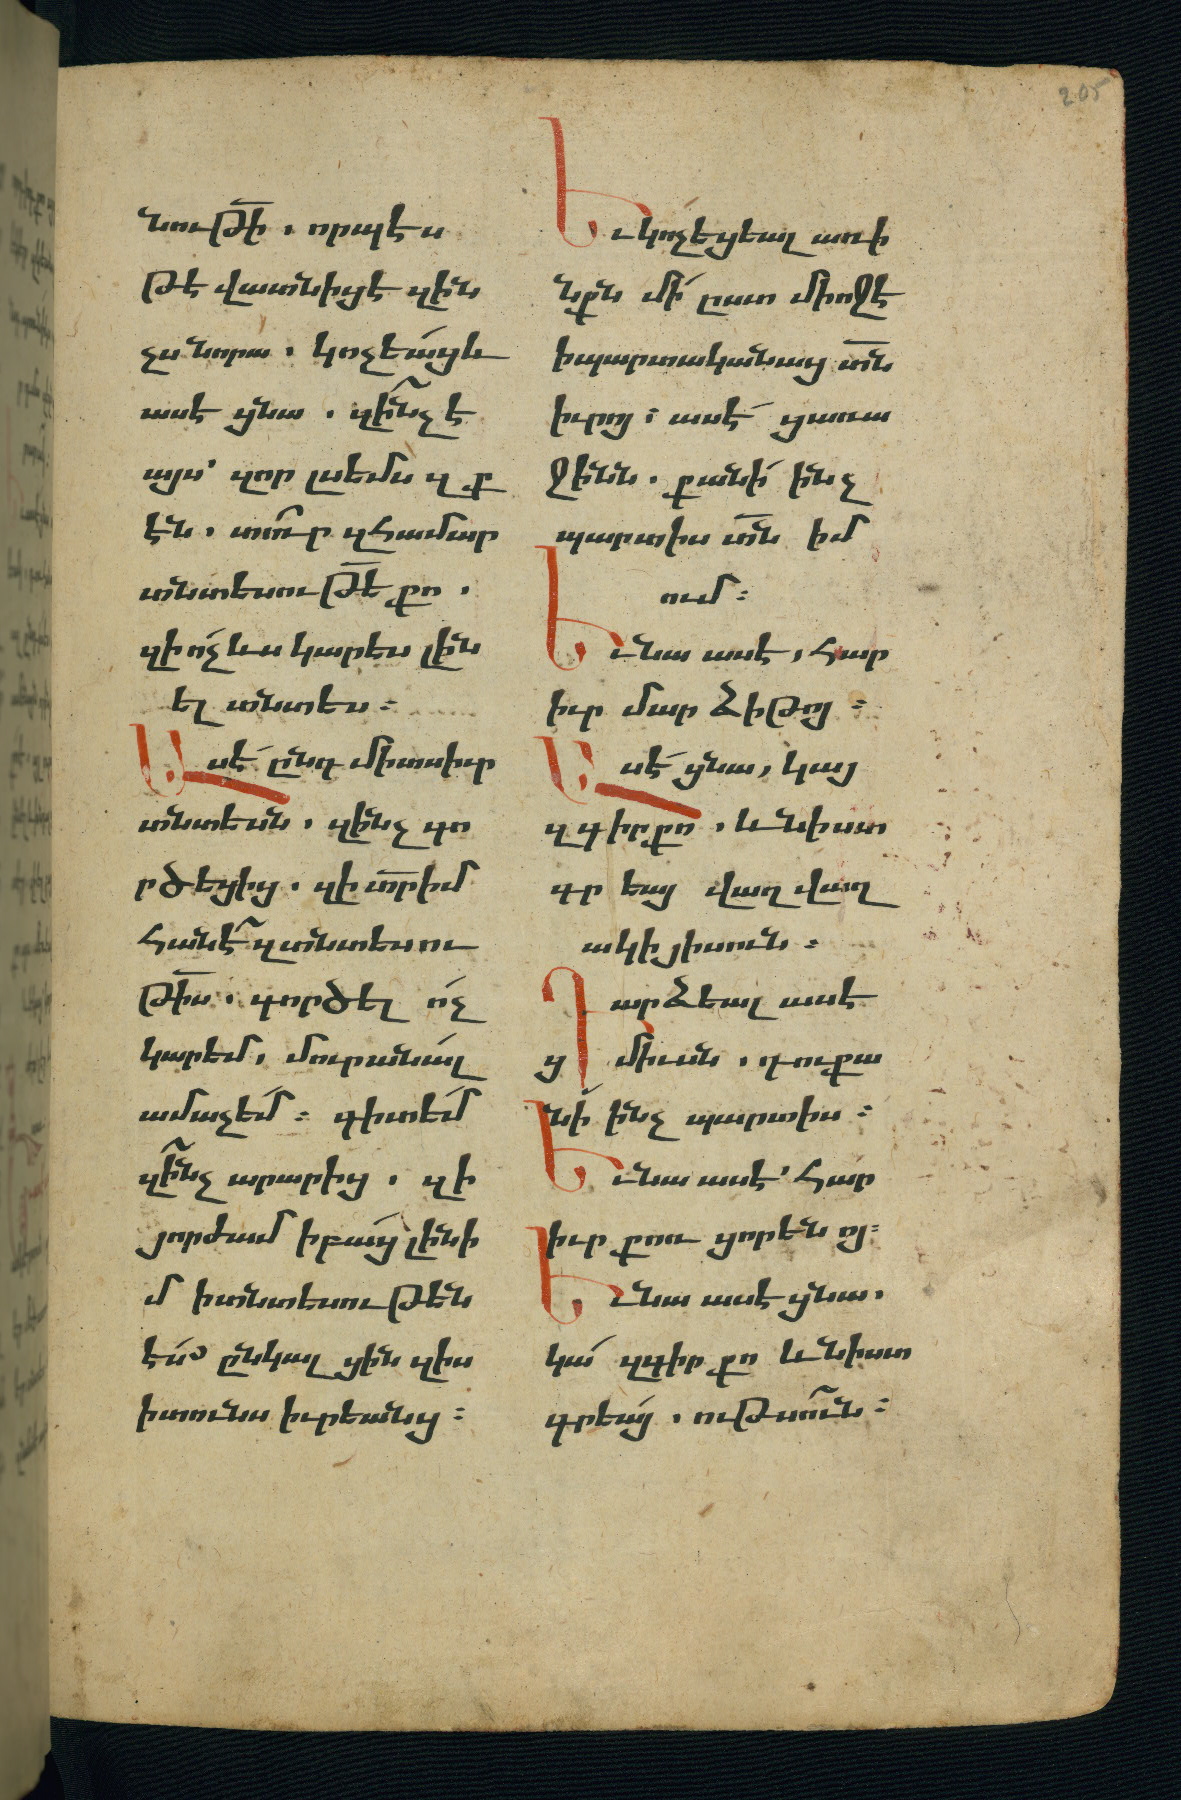 205
նութի՟. որպէս
թէ վատնիցէ զին
չս նորա. կոչեաց և
ասէ ցնա. զի՞նչ է
այս՝ զոր լսեմս զք
էն. տո՛ւր զհամար
տնտեսութե՟ քո.
զի ոչ ևս կարես լին
ել տնտես:
Ասէ ընդ միտս իւր
տնտեսն. զինչ գո
րծեցից. զի տր՟ իմ
հանէ՞ զտնտեսու
թի՟ս. գործել ոչ
կարեմ, մուրանալ
ամաչեմ: գիտեմ
զի՞նչ արարից. զի
յորժամ ի բաց լինի
մ ի տնտեսութէն
է սս ընկալցին զիս
ի տունս իւրեանց:
Եւ կոչեցեալ առ ի
նքն մի ըստ միոջէ
ի պարտականաց տն՟
իւրոյ: ասէ ցառա
ջինն. քանի ինչ
պարտիս տն՟ իմ
ում:
Եւ նա ասէ, հար
իւր մար ձիթոյ:
Ասէ ցնա, կալ
զգիր քո. և նիստ
գրեայ վաղ վաղ
ակի յիսուն:
Դարձեալ ասէ
ց միւսն. դու քա
նի ինչ պարտիս:
Եւ նա ասէ՝ հար
իւր քոռ ցորենոյ:
Եւ նա ասէ ցնա.
կալ զգիր քո և նիստ
գրեայ. ութսո՟ւն: